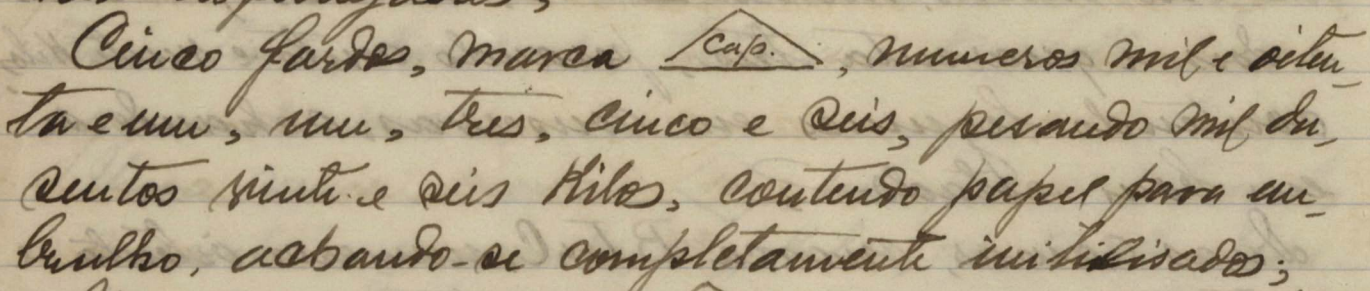 Cinco fardos, marca Cap., numeros mil e oiten-
ta e um, um, tres, cinco e seis, pesando mil du-
sentos vinte e seis Kilos, contendo papel para em-
brulho, achando-se completamente inutilisados;